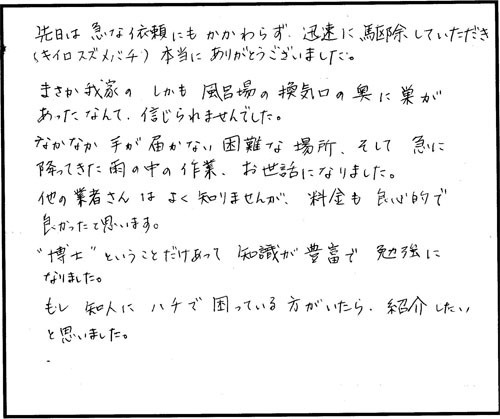 先日は 急な依頼にもかかわらず、迅速に駆除していただき
(キイロスズメバチ) 本当に ありがとうございました。
まさか我家の しかも 風呂場の換気口の奥に巣が
あったなんて、信じられませんでした。
なかなか 手が届かない 困難な 場所、そして 急に
降ってきた雨の中の作業、お世話になりました。
他の業者さんは よく知りませんが、料金も 良心的で
良かったと思います。
"博士"ということだけあって 知識が豊富で 勉強に
なりました。
もし 知人に ハチで 困っている 方がいたら、紹介したい
と思いました。